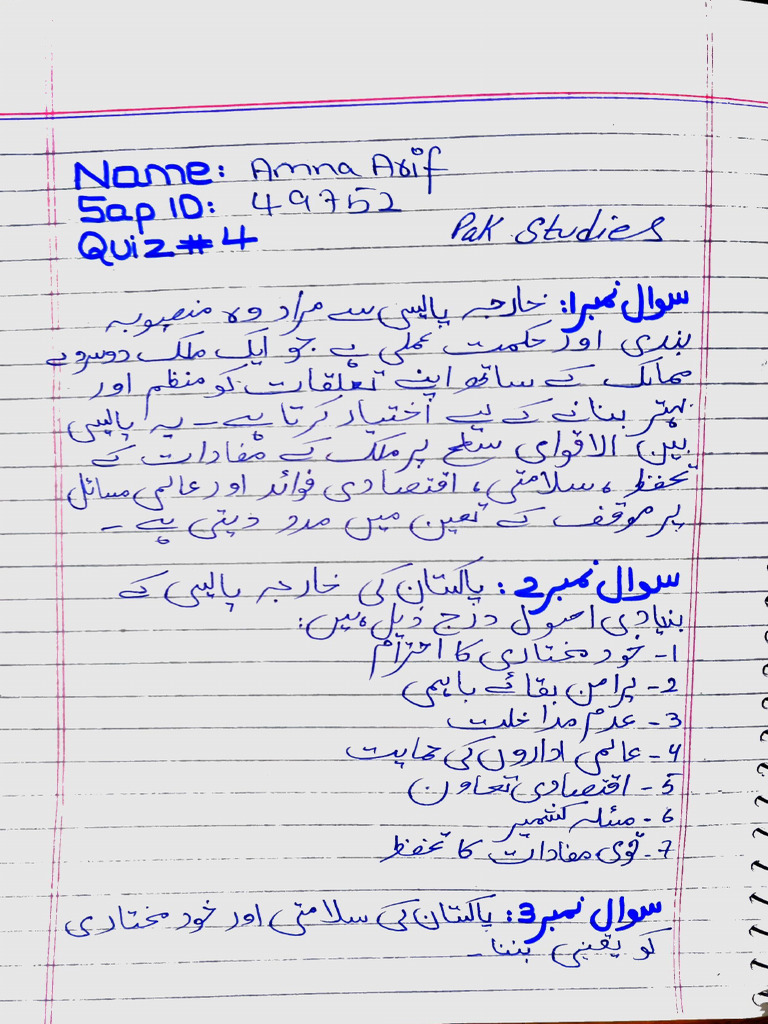 Name: Amna Arif
Sap ID: 49752
Quiz# 4
Pak Studies
سوال نمبر1: خارجہ پالیسی سے مراد وہ منصوبہ
بندی اور حکمت عملی ہے جو ایک ملک دوسرے
ممالک کے ساتھ اپنے تعلقات کو منظم اور
بہتر بنانے کے لیے اختیار کرتا ہے۔ یہ پالیسی
بین الاقوامی سطح پر ملک کے مفادات کے
تحفظ، سلامتی، اقتصادی فوائد اور عالمی مسائل
پر موقف کے تعین میں مدد دیتی ہے۔
سوال نمبر2: پاکستان کی خارجہ پالیسی کے
بنیادی اصول درج ذیل ہیں:
1- خود مختاری کا احترام
2- پرامن بقائے باہمی
3- عدم مداخلت
4- عالمی اداروں کی حمایت
5- اقتصادی تعاون
6- مسئلہ کشمیر
7- قومی مفادات کا تحفظ
سوال نمبر3: پاکستان کی سلامتی اور خود مختاری
کو یقینی بننا۔